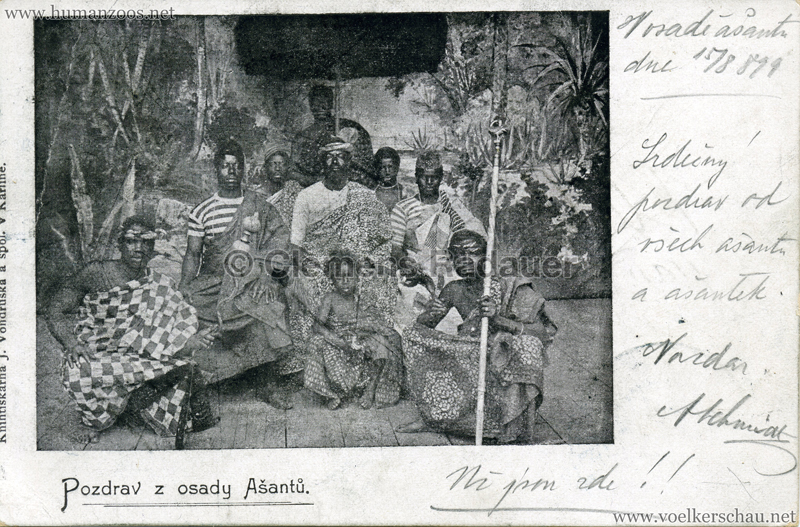 www.humanzoos.net
V osadě ašantů
dne 15/8 899
Srdečný
pozdrav od
všech ašantů
a ašantek.
Nazdar
ASchmidt
Knihtiskárna J. Vondruška a spol. v Karlíně.
© Clemens Radauer
Pozdrav z osady Ašantů.
jsou zde!!
www.voelkerschau.net